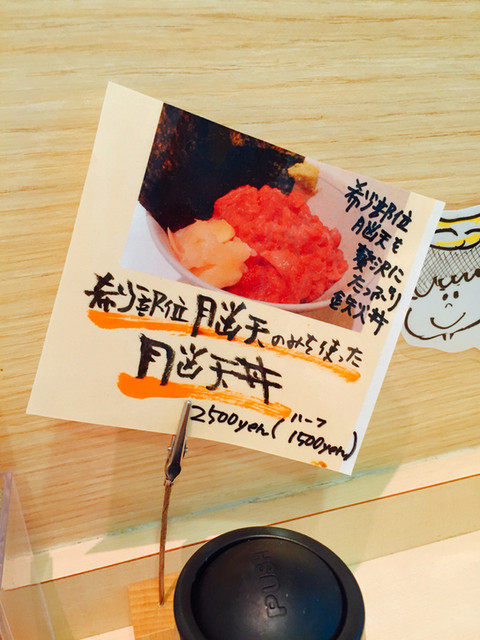 希少部位
脳天を
贅沢に
たっぷり
鉄火丼
希少部位脳天のみを使った
脳天丼
2500yen(ハーフ
1500yen)
PUSH